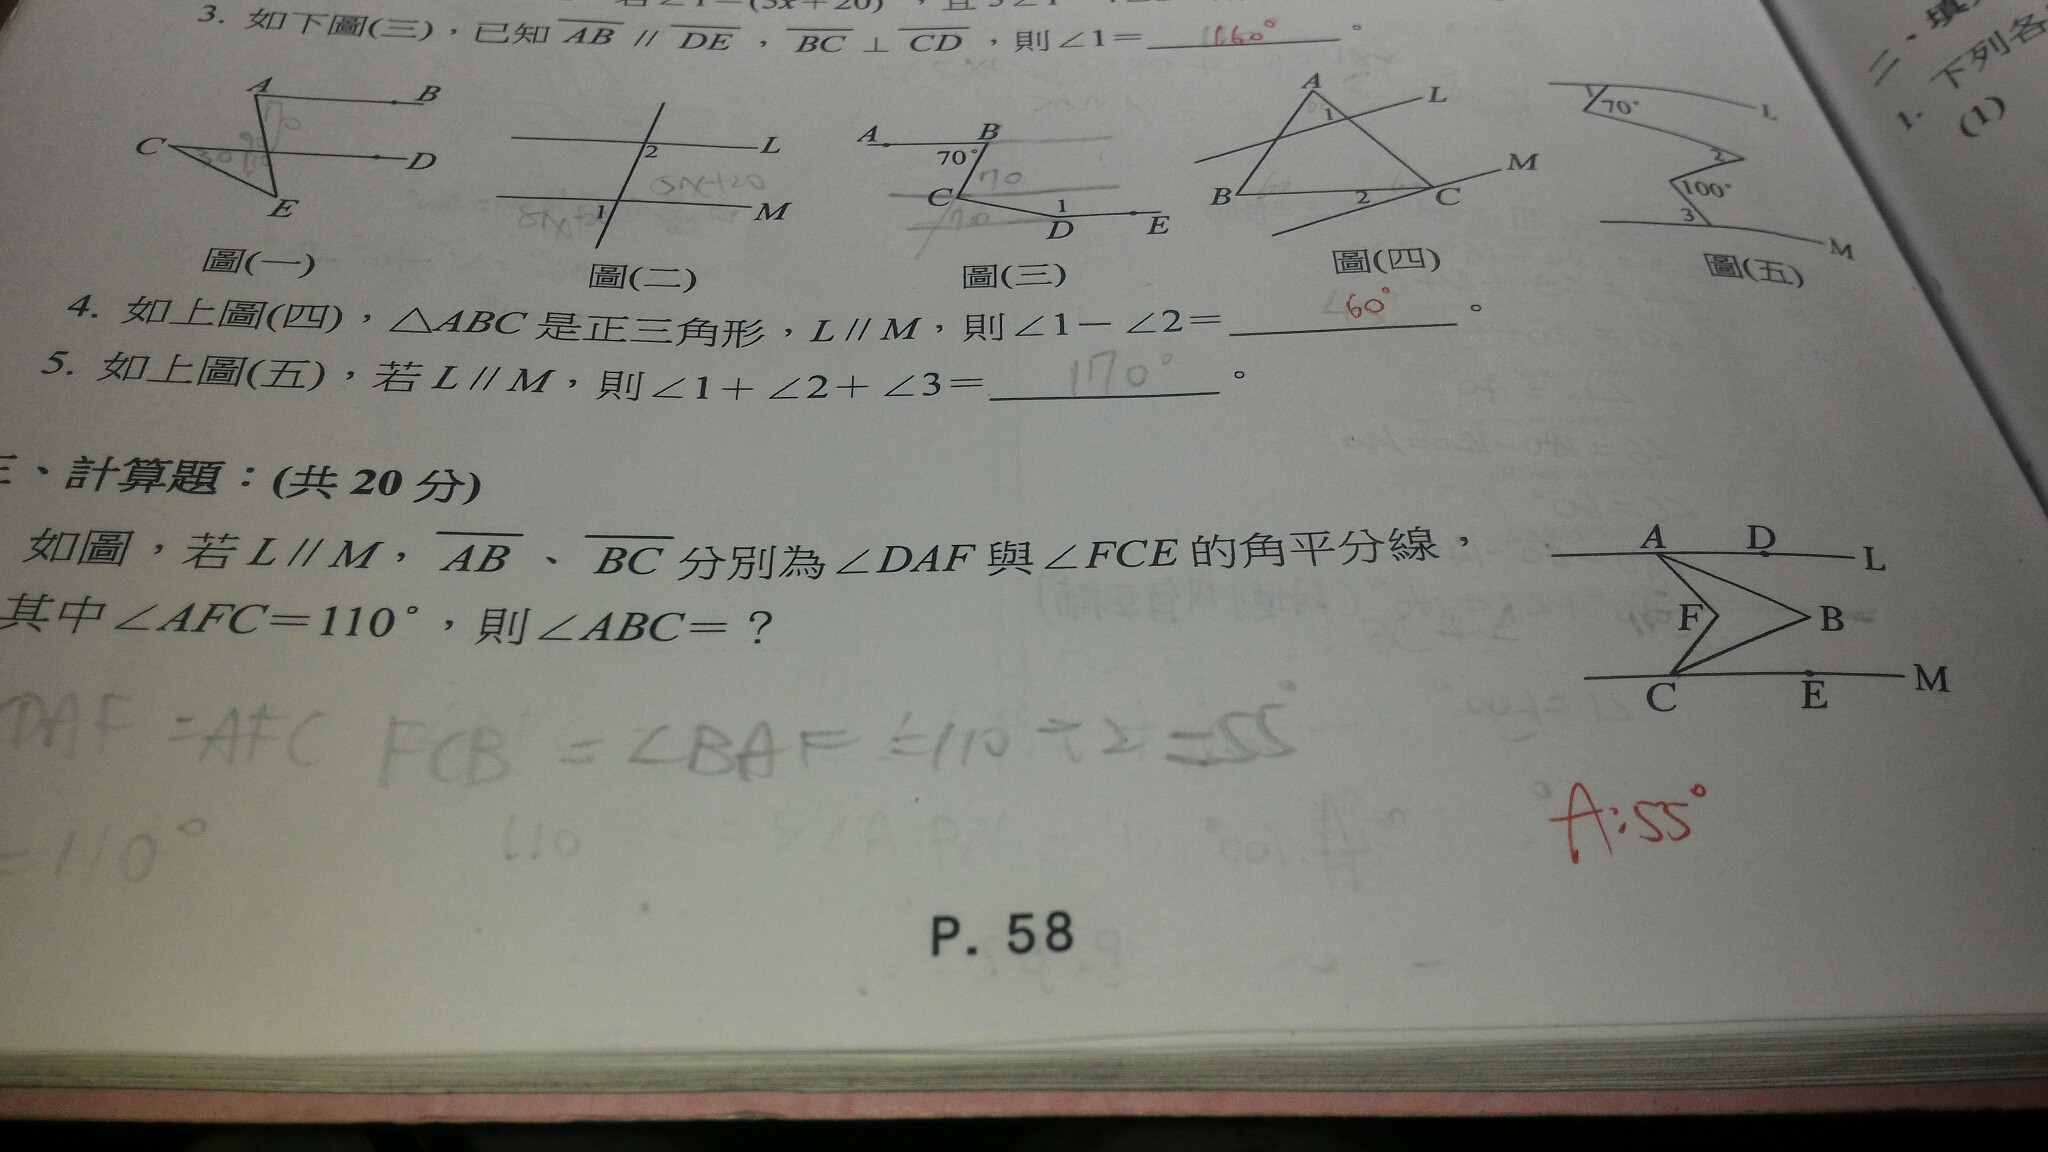 3. 如下圖(三)，已知 AB // DE，BC ⊥ CD，則∠1＝ 160° 。
A B C D E
圖(一)
2 L 1 M
圖(二)
A B 70° C 1 D E
70
圖(三)
A 1 L B 2 C M
圖(四)
1 70° L 2 100° 3 M
圖(五)
4. 如上圖(四)，△ABC 是正三角形，L // M，則∠1－∠2＝ 60° 。
5. 如上圖(五)，若 L // M，則∠1＋∠2＋∠3＝ 170° 。
三、計算題：(共 20 分)
如圖，若 L // M，AB、BC 分別為∠DAF 與∠FCE 的角平分線，
其中∠AFC＝110°，則∠ABC＝？
A D L
F B
C E M
DAF = AFC FCB = ∠BAF = 110 ÷ 2 = 55°
= 110°
A:55°
P. 58
二、填
1. 下列各
(1)